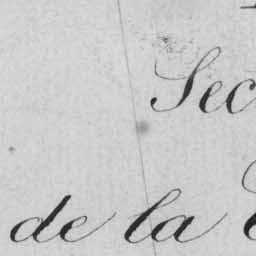 Sec
de la